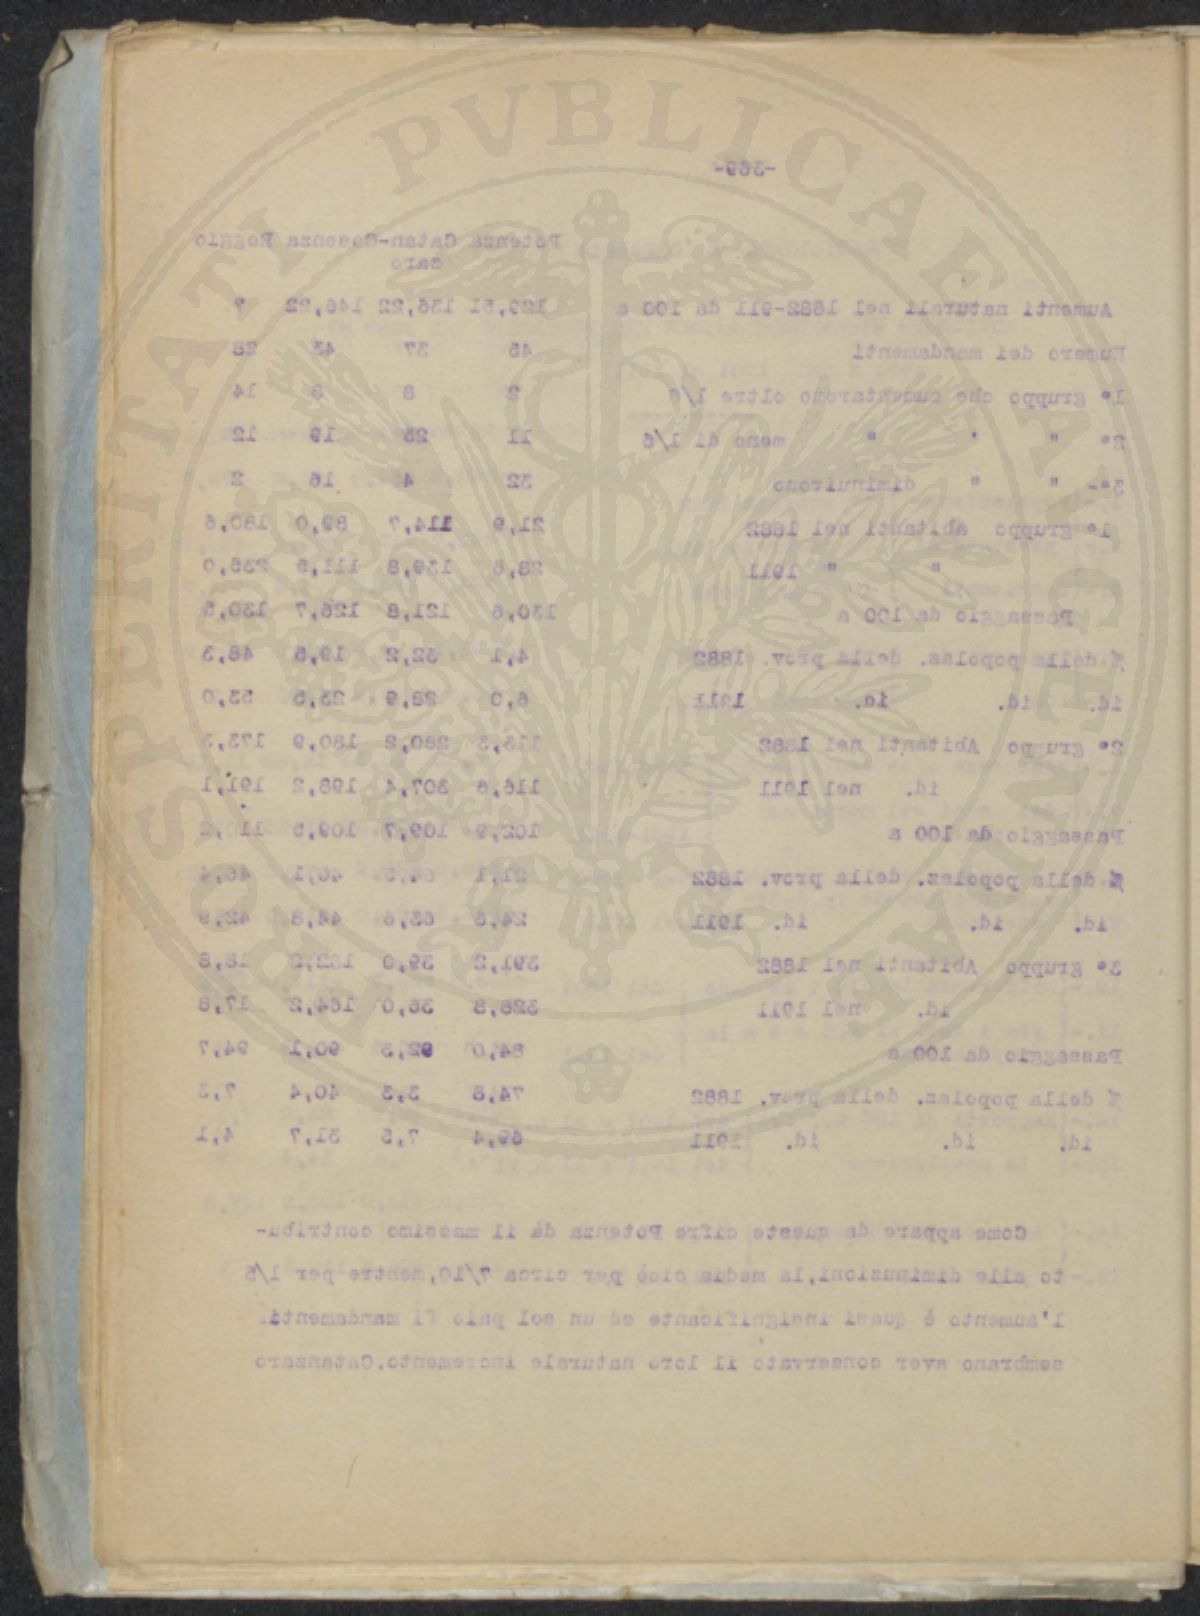 -369-
Potenza Catan-Cosenza Reggio
zaro
Aumenti naturali nel 1882-911 da 100 a 129,51 136,22 146,22 ?
Numero dei mandamenti 45 37 43 28
1° gruppo che aumentarono oltre 1/6 2 8 8 14
2° " ' " meno di 1/6 11 25 19 12
3°- " " diminuirono 32 4 16 2
1° gruppo abitanti nel 1882 21,9 114,7 89,0 180,6
" " 1911 28,6 139,8 111,5 235,0
Passaggio da 100 a 130,6 121,8 126,7 130,5
% della popolaz. della prov. 1882 4,1 32,2 19,5 48,3
id. id. id. 1911 6,0 28,9 23,5 53,0
2° gruppo Abitanti nel 1882 113,3 280,2 180,9 173,3
id. nel 1911 116,6 307,4 198,2 191,1
Passaggio da 100 a 102,9 109,7 109,5 110,2
% della popolaz. della prov. 1882 21,1 64,5 40,1 46,4
id. id. id. 1911 24,6 63,6 44,8 42,9
3° gruppo Abitanti nel 1882 391,2 39,0 182,2 18,8
id. nel 1911 328,8 36,0 164,2 17,8
Passaggio da 100 a 84,0 92,3 90,1 94,7
% della popolaz. della prov. 1882 74,8 3,3 40,4 7,3
id. id. id. 1911 69,4 7,5 31,7 4,1
Come appare da queste cifre Potenza dà il massimo contribu-
to alle diminuzioni,la media cioè per circa 7/10,mentre per 1/5
l'aumento è quasi insignificante ed un sol paio fi mandamenti
sembrano aver conservato il loro naturale incremento.Catanzaro
PROSPERITATI PVBLICAE AVGENDAE